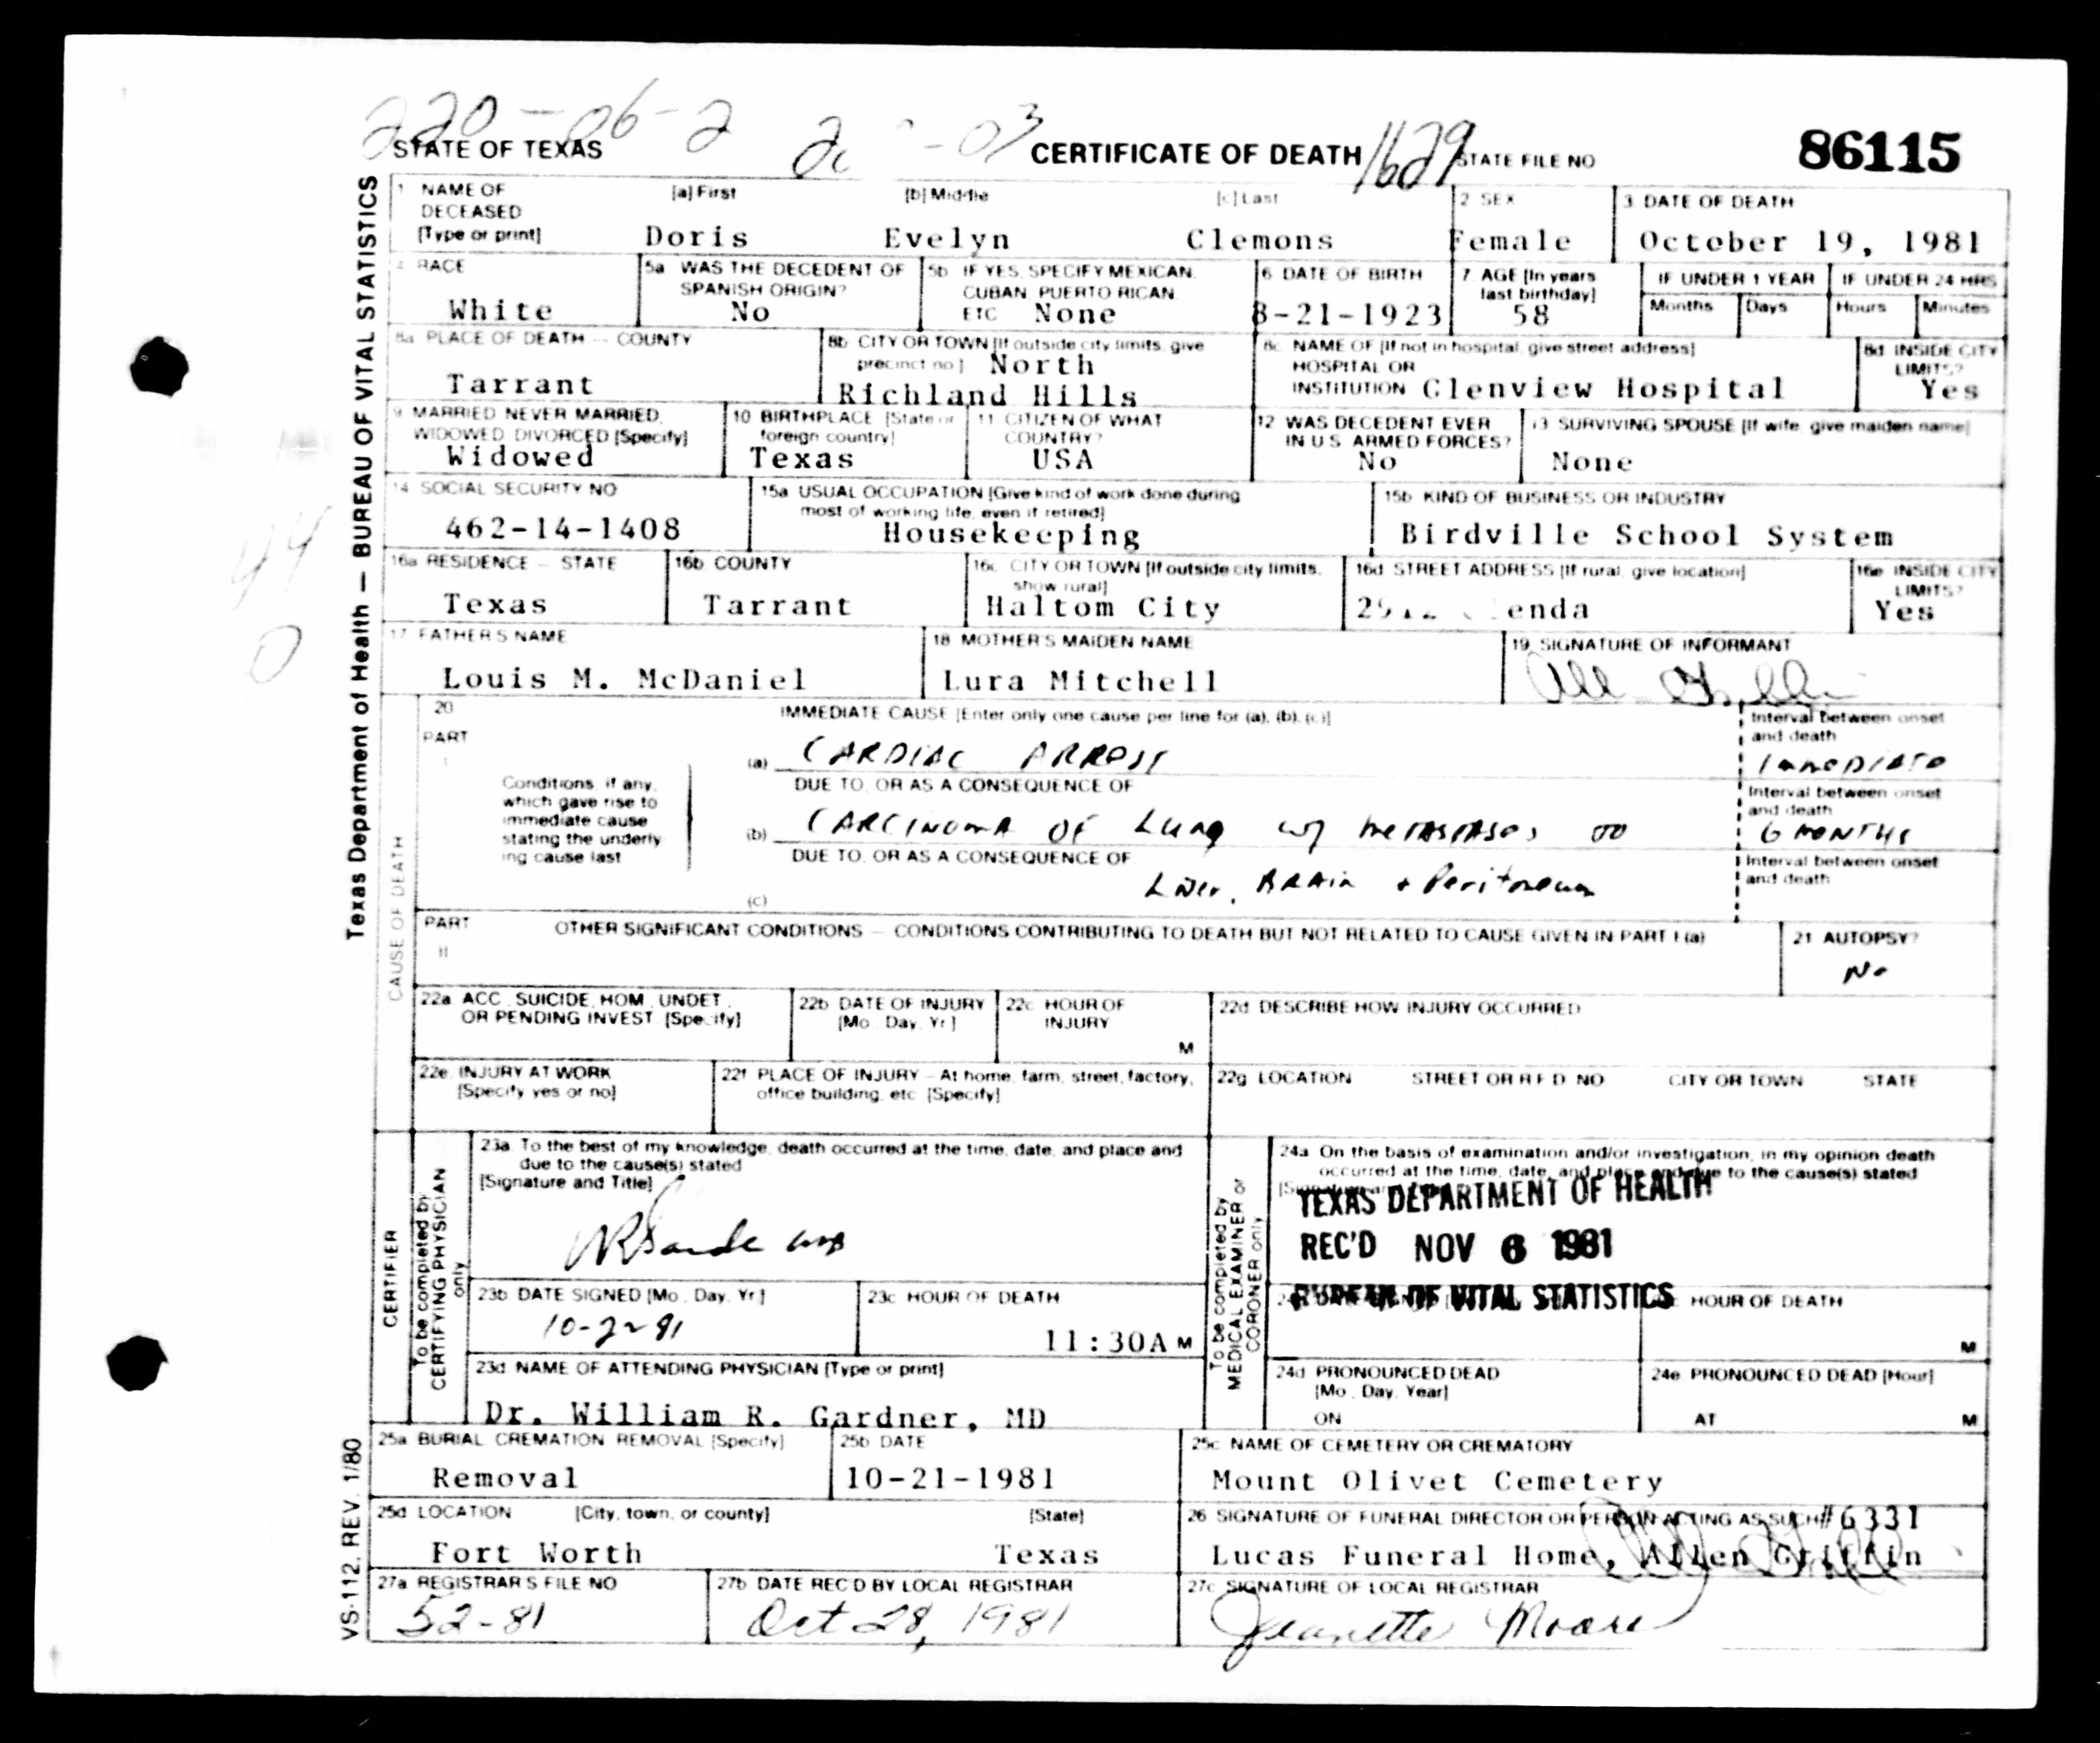 220-06-2
STATE OF TEXAS CERTIFICATE OF DEATH 1629 STATE FILE NO 86115
Texas Department of Health — BUREAU OF VITAL STATISTICS
1 NAME OF DECEASED [Type or print] [a] First [b] Middle [c] Last 2 SEX 3 DATE OF DEATH
Doris Evelyn Clemons Female October 19, 1981
4 RACE 5a WAS THE DECEDENT OF SPANISH ORIGIN? 5b IF YES, SPECIFY MEXICAN, CUBAN, PUERTO RICAN, ETC 6 DATE OF BIRTH 7 AGE [In years last birthday] IF UNDER 1 YEAR IF UNDER 24 HRS
Months Days Hours Minutes
White No None 8-21-1923 58
8a PLACE OF DEATH — COUNTY 8b CITY OR TOWN [If outside city limits, give precinct no] 8c NAME OF [If not in hospital, give street address] HOSPITAL OR INSTITUTION 8d INSIDE CITY LIMITS?
Tarrant North Richland Hills Glenview Hospital Yes
9 MARRIED NEVER MARRIED, WIDOWED DIVORCED [Specify] 10 BIRTHPLACE [State or foreign country] 11 CITIZEN OF WHAT COUNTRY? 12 WAS DECEDENT EVER IN U.S. ARMED FORCES? 13 SURVIVING SPOUSE [If wife, give maiden name]
Widowed Texas USA No None
14 SOCIAL SECURITY NO 15a USUAL OCCUPATION [Give kind of work done during most of working life, even if retired] 15b KIND OF BUSINESS OR INDUSTRY
462-14-1408 Housekeeping Birdville School System
16a RESIDENCE — STATE 16b COUNTY 16c CITY OR TOWN [If outside city limits, show rural] 16d STREET ADDRESS [If rural, give location] 16e INSIDE CITY LIMITS?
Texas Tarrant Haltom City Yes
17 FATHER'S NAME 18 MOTHER'S MAIDEN NAME 19 SIGNATURE OF INFORMANT
Louis M. McDaniel Lura Mitchell
CAUSE OF DEATH
20 IMMEDIATE CAUSE [Enter only one cause per line for (a), (b), (c)] Interval between onset and death
PART I
(a) CARDIAC ARREST Immediate
Conditions, if any, which gave rise to immediate cause stating the underlying cause last
DUE TO, OR AS A CONSEQUENCE OF Interval between onset and death
(b) CARCINOMA OF LUNG w/ METASTASES TO 6 MONTHS
DUE TO, OR AS A CONSEQUENCE OF Interval between onset and death
(c) Liver, BRAIN + Peritoneum
PART II OTHER SIGNIFICANT CONDITIONS — CONDITIONS CONTRIBUTING TO DEATH BUT NOT RELATED TO CAUSE GIVEN IN PART I (a) 21 AUTOPSY?
No
22a ACC., SUICIDE, HOM., UNDET., OR PENDING INVEST [Specify] 22b DATE OF INJURY [Mo. Day. Yr.] 22c HOUR OF INJURY M 22d DESCRIBE HOW INJURY OCCURRED
22e INJURY AT WORK [Specify yes or no] 22f PLACE OF INJURY — At home, farm, street, factory, office building, etc [Specify] 22g LOCATION STREET OR R.F.D. NO CITY OR TOWN STATE
CERTIFIER
To be completed by CERTIFYING PHYSICIAN only
23a To the best of my knowledge, death occurred at the time, date, and place and due to the cause(s) stated
[Signature and Title]
23b DATE SIGNED [Mo., Day, Yr.] 23c HOUR OF DEATH
11:30A M
23d NAME OF ATTENDING PHYSICIAN [Type or print]
Dr. William R. Gardner, MD
To be completed by MEDICAL EXAMINER or CORONER only
24a On the basis of examination and/or investigation, in my opinion death occurred at the time, date, and place and due to the cause(s) stated
TEXAS DEPARTMENT OF HEALTH
REC'D NOV 6 1981
BUREAU OF VITAL STATISTICS
HOUR OF DEATH M
24d PRONOUNCED DEAD [Mo., Day, Year] ON 24e PRONOUNCED DEAD [Hour] AT M
25a BURIAL CREMATION REMOVAL [Specify] 25b DATE 25c NAME OF CEMETERY OR CREMATORY
Removal 10-21-1981 Mount Olivet Cemetery
25d LOCATION [City, town, or county] [State] 26 SIGNATURE OF FUNERAL DIRECTOR OR PERSON ACTING AS SUCH #6331
Fort Worth Texas Lucas Funeral Home, Allen Griffin
27a REGISTRAR'S FILE NO 27b DATE REC'D BY LOCAL REGISTRAR 27c SIGNATURE OF LOCAL REGISTRAR
52-81 Oct 28, 1981 Jeanette Moore
VS-112, REV. 1/80